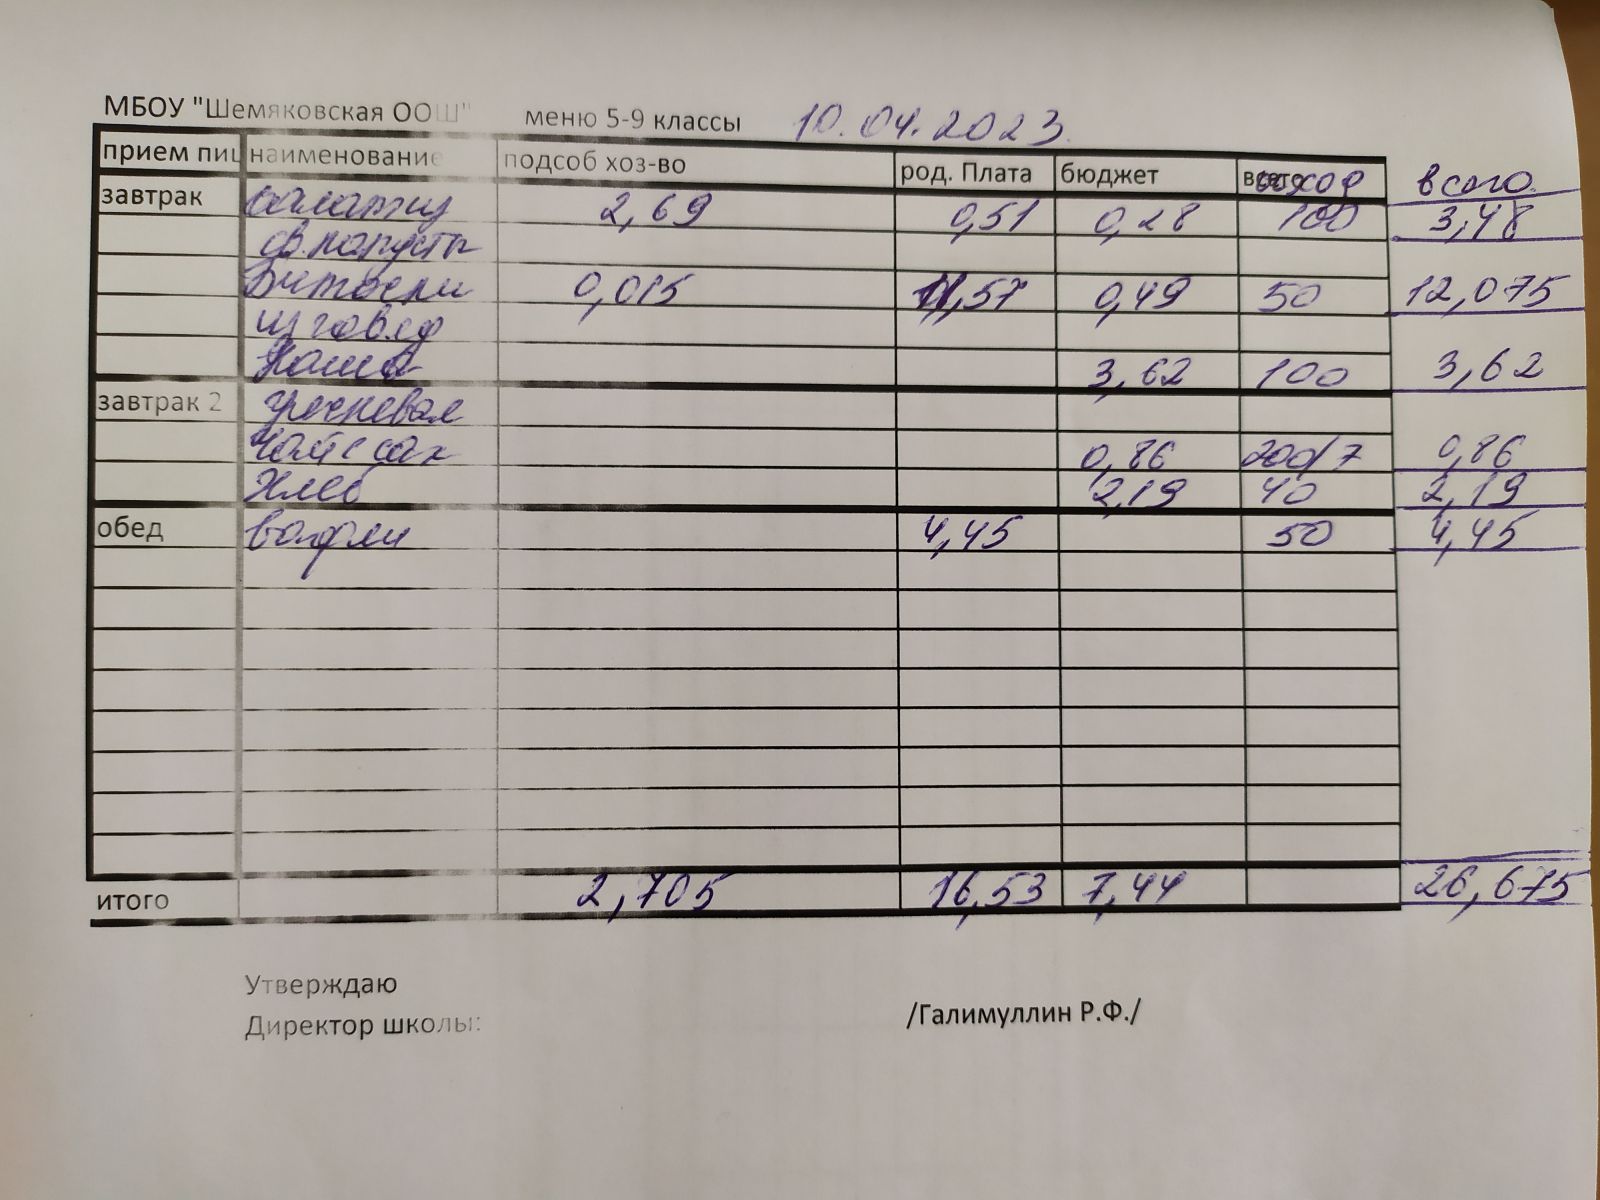 МБОУ "Шемяковская ООШ" меню 5-9 классы 10.04.2023.
прием пищ наименование подсоб хоз-во род. Плата бюджет выход всего
завтрак салат из 2,69 0,51 0,28 100 3,48
св.капусты
Биточки 0,015 11,57 0,49 50 12,075
из говяд
Каша 3,62 100 3,62
завтрак 2 гречневая
Чай с сах 0,86 200/7 0,86
Хлеб 2,19 40 2,19
обед вафли 4,45 50 4,45
итого 2,705 16,53 7,44 26,675
Утверждаю
Директор школы: /Галимуллин Р.Ф./